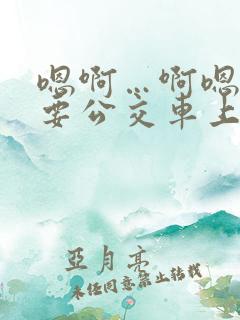 嗯啊…啊嗯
要公交車上
亞月亮
未任同意禁止转载